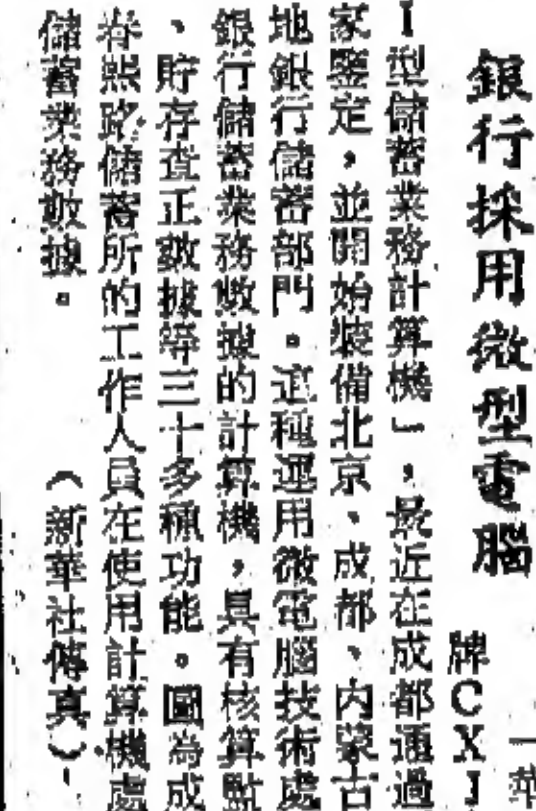 銀行採用微型電腦
一華
牌CXJ
I型儲蓄業務計算機」，最近在成都通過
家鑒定，並開始裝備北京、成都、內蒙古
地銀行儲蓄部門。這種運用微電腦技術處
銀行儲蓄業務數據的計算機，具有核算監
、貯存查正數據等三十多種功能。圖為成
春熙路儲蓄所的工作人員在使用計算機處
儲蓄業務數據。（新華社傳真）